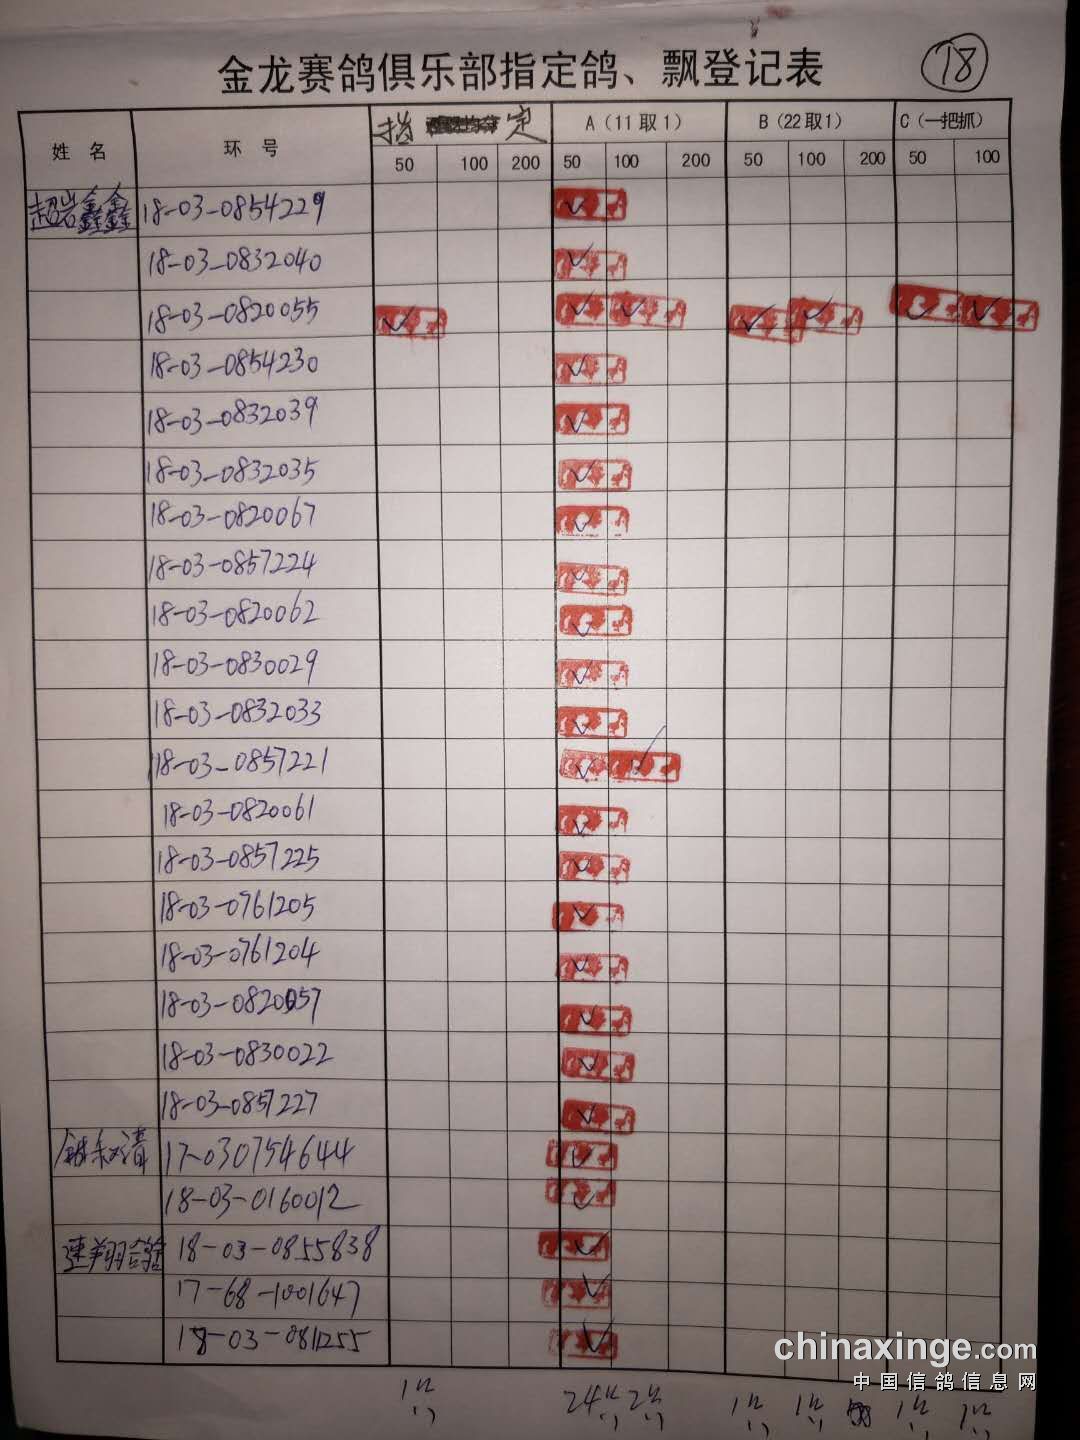 18
金龙赛鸽俱乐部指定鸽、飘登记表
姓名 环号 指定 A（11取1） B（22取1） C（一把抓）
50 100 200 50 100 200 50 100 200 50 100
超岩鑫鑫 18-03-0854229
18-03-0832040
18-03-0820055
18-03-0854230
18-03-0832039
18-03-0832035
18-03-0820067
18-03-0857224
18-03-0820062
18-03-0830029
18-03-0832033
18-03-0857221
18-03-0820061
18-03-0857225
18-03-0761205
18-03-0761204
18-03-0820057
18-03-0830022
18-03-0857227
17-030754644
18-03-0160012
速翔鸽舍 18-03-0855838
17-68-1001647
18-03-0811255
1 24 2 1 1 1 1
chinaxinge.com
中国信鸽信息网